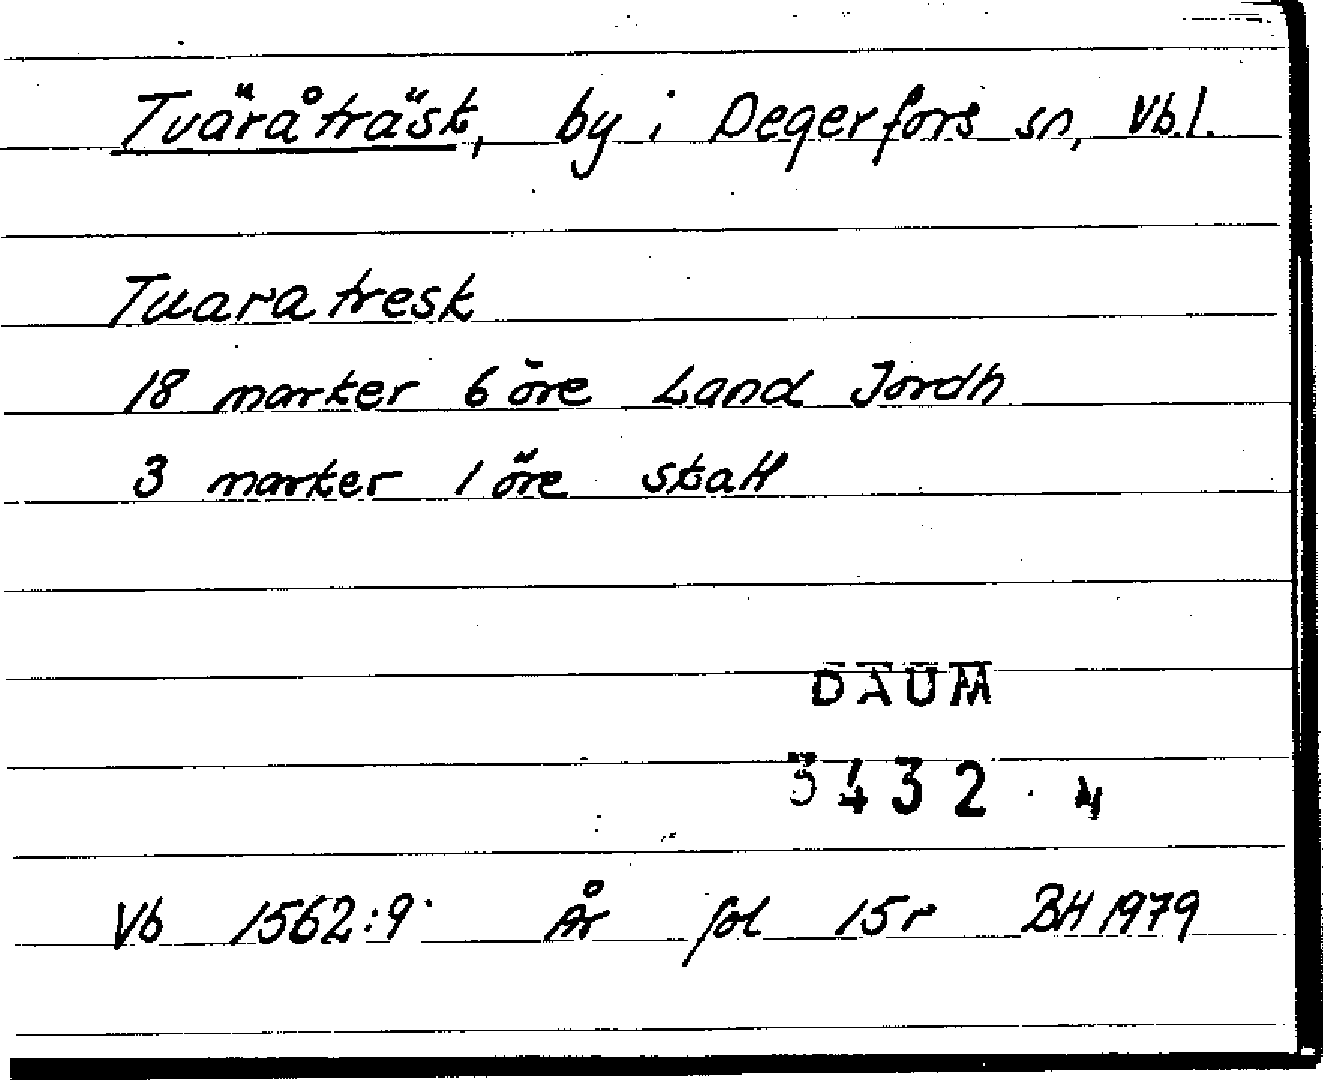 Tväråträsk, by i Degerfors sn, Vb.l.
Tuaratresk
18 marker 6 öre Land Jordh
3 marker 1 öre skatt
DAUM
3432. 4
Vb 1562:9 År fol 15r BH 1979